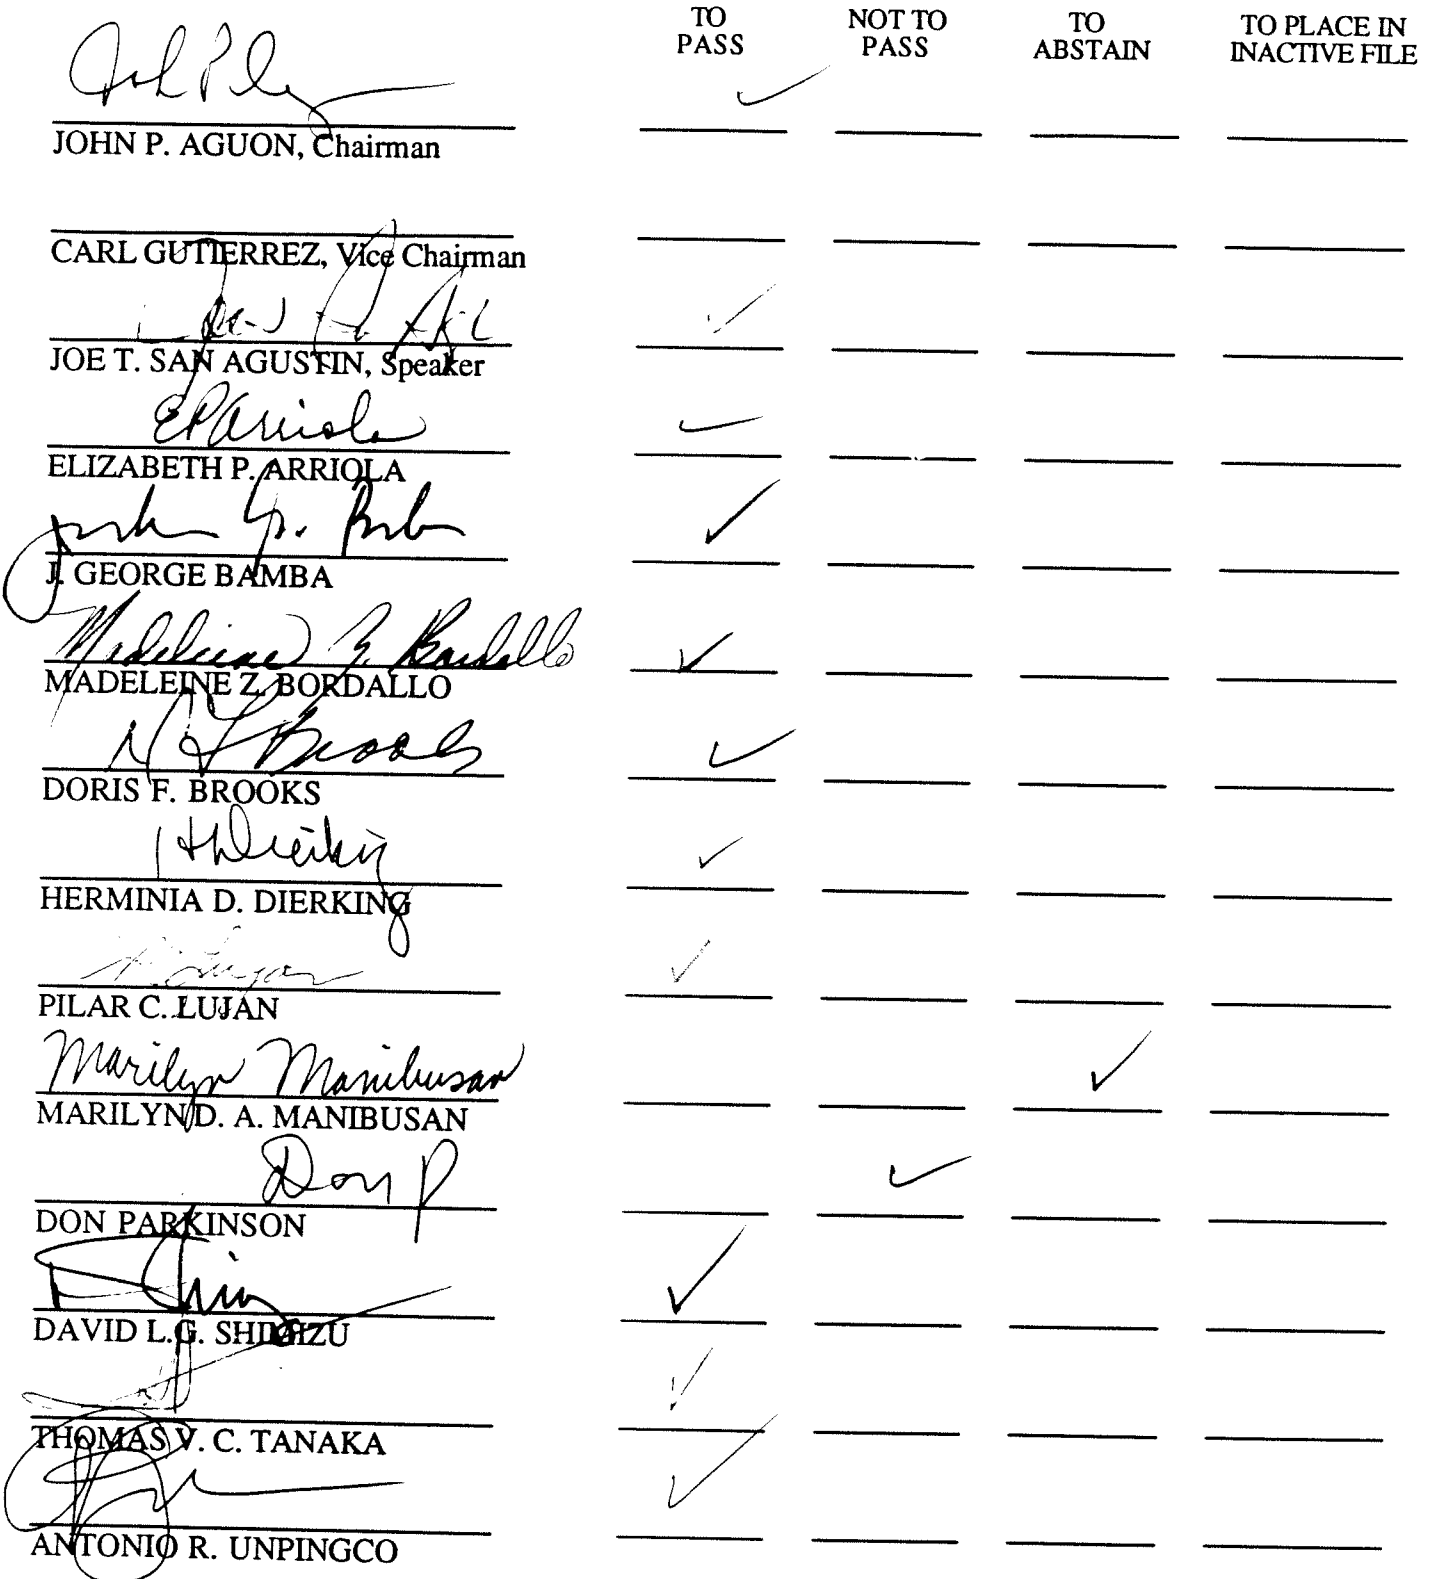 TO PASS NOT TO PASS TO ABSTAIN TO PLACE IN INACTIVE FILE
✓
JOHN P. AGUON, Chairman
CARL GUTIERREZ, Vice Chairman
✓
JOE T. SAN AGUSTIN, Speaker
EPArriola ✓
ELIZABETH P. ARRIOLA
✓
J. GEORGE BAMBA
Madeleine Z. Bordallo ✓
MADELEINE Z. BORDALLO
Brooks ✓
DORIS F. BROOKS
HDierking ✓
HERMINIA D. DIERKING
Lujan ✓
PILAR C. LUJAN
Marilyn Manibusan ✓
MARILYN D. A. MANIBUSAN
Don P ✓
DON PARKINSON
✓
DAVID L.G. SHIMIZU
✓
THOMAS V. C. TANAKA
✓
ANTONIO R. UNPINGCO